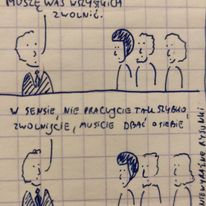 MUSZĘ WAS WSZYSTKICH
ZWOLNIĆ.
W SENSIE, NIE PRACUJCIE TAK SZYBKO,
ZWOLNIJCIE, MUSICIE DBAĆ O SIEBIE
RYSUNKI